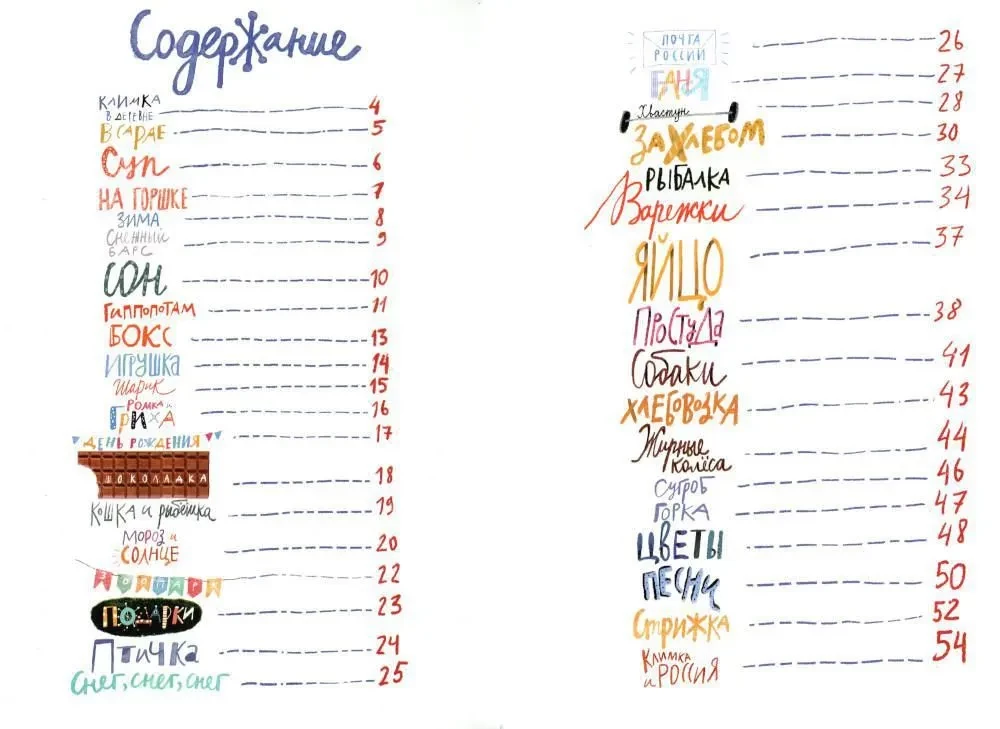 Содержание
КЛИМКА
В ДЕРЕВНЕ 4
В САРАЕ 5
Суп 6
НА ГОРШКЕ 7
ЗИМА 8
СНЕЖНЫЙ
БАРС 9
СОН 10
ГИППОПОТАМ 11
БОКС 13
ИГРУШКА 14
Шарик 15
РОМКА И
ГРИХА 16
ДЕНЬ РОЖДЕНИЯ 17
ШОКОЛАДКА 18
КОШКА И РЫБЁШКА 19
МОРОЗ И
СОЛНЦЕ 20
ЗООПАРК 22
ПОДАРКИ 23
ПТИЧКА 24
СНЕГ, СНЕГ, СНЕГ 25
ПОЧТА
РОССИИ 26
БАНЯ 27
Хвастун 28
ЗА ХЛЕБОМ 30
РЫБАЛКА 33
Варежки 34
ЯЙЦО 37
ПРОСТУДА 38
Собаки 41
ХЛЕБОВОЗКА 43
Жирные
колёса 44
СУГРОБ 46
ГОРКА 47
ЦВЕТЫ 48
ПЕСНИ 50
СТРИЖКА 52
КЛИМКА
И РОССИЯ 54